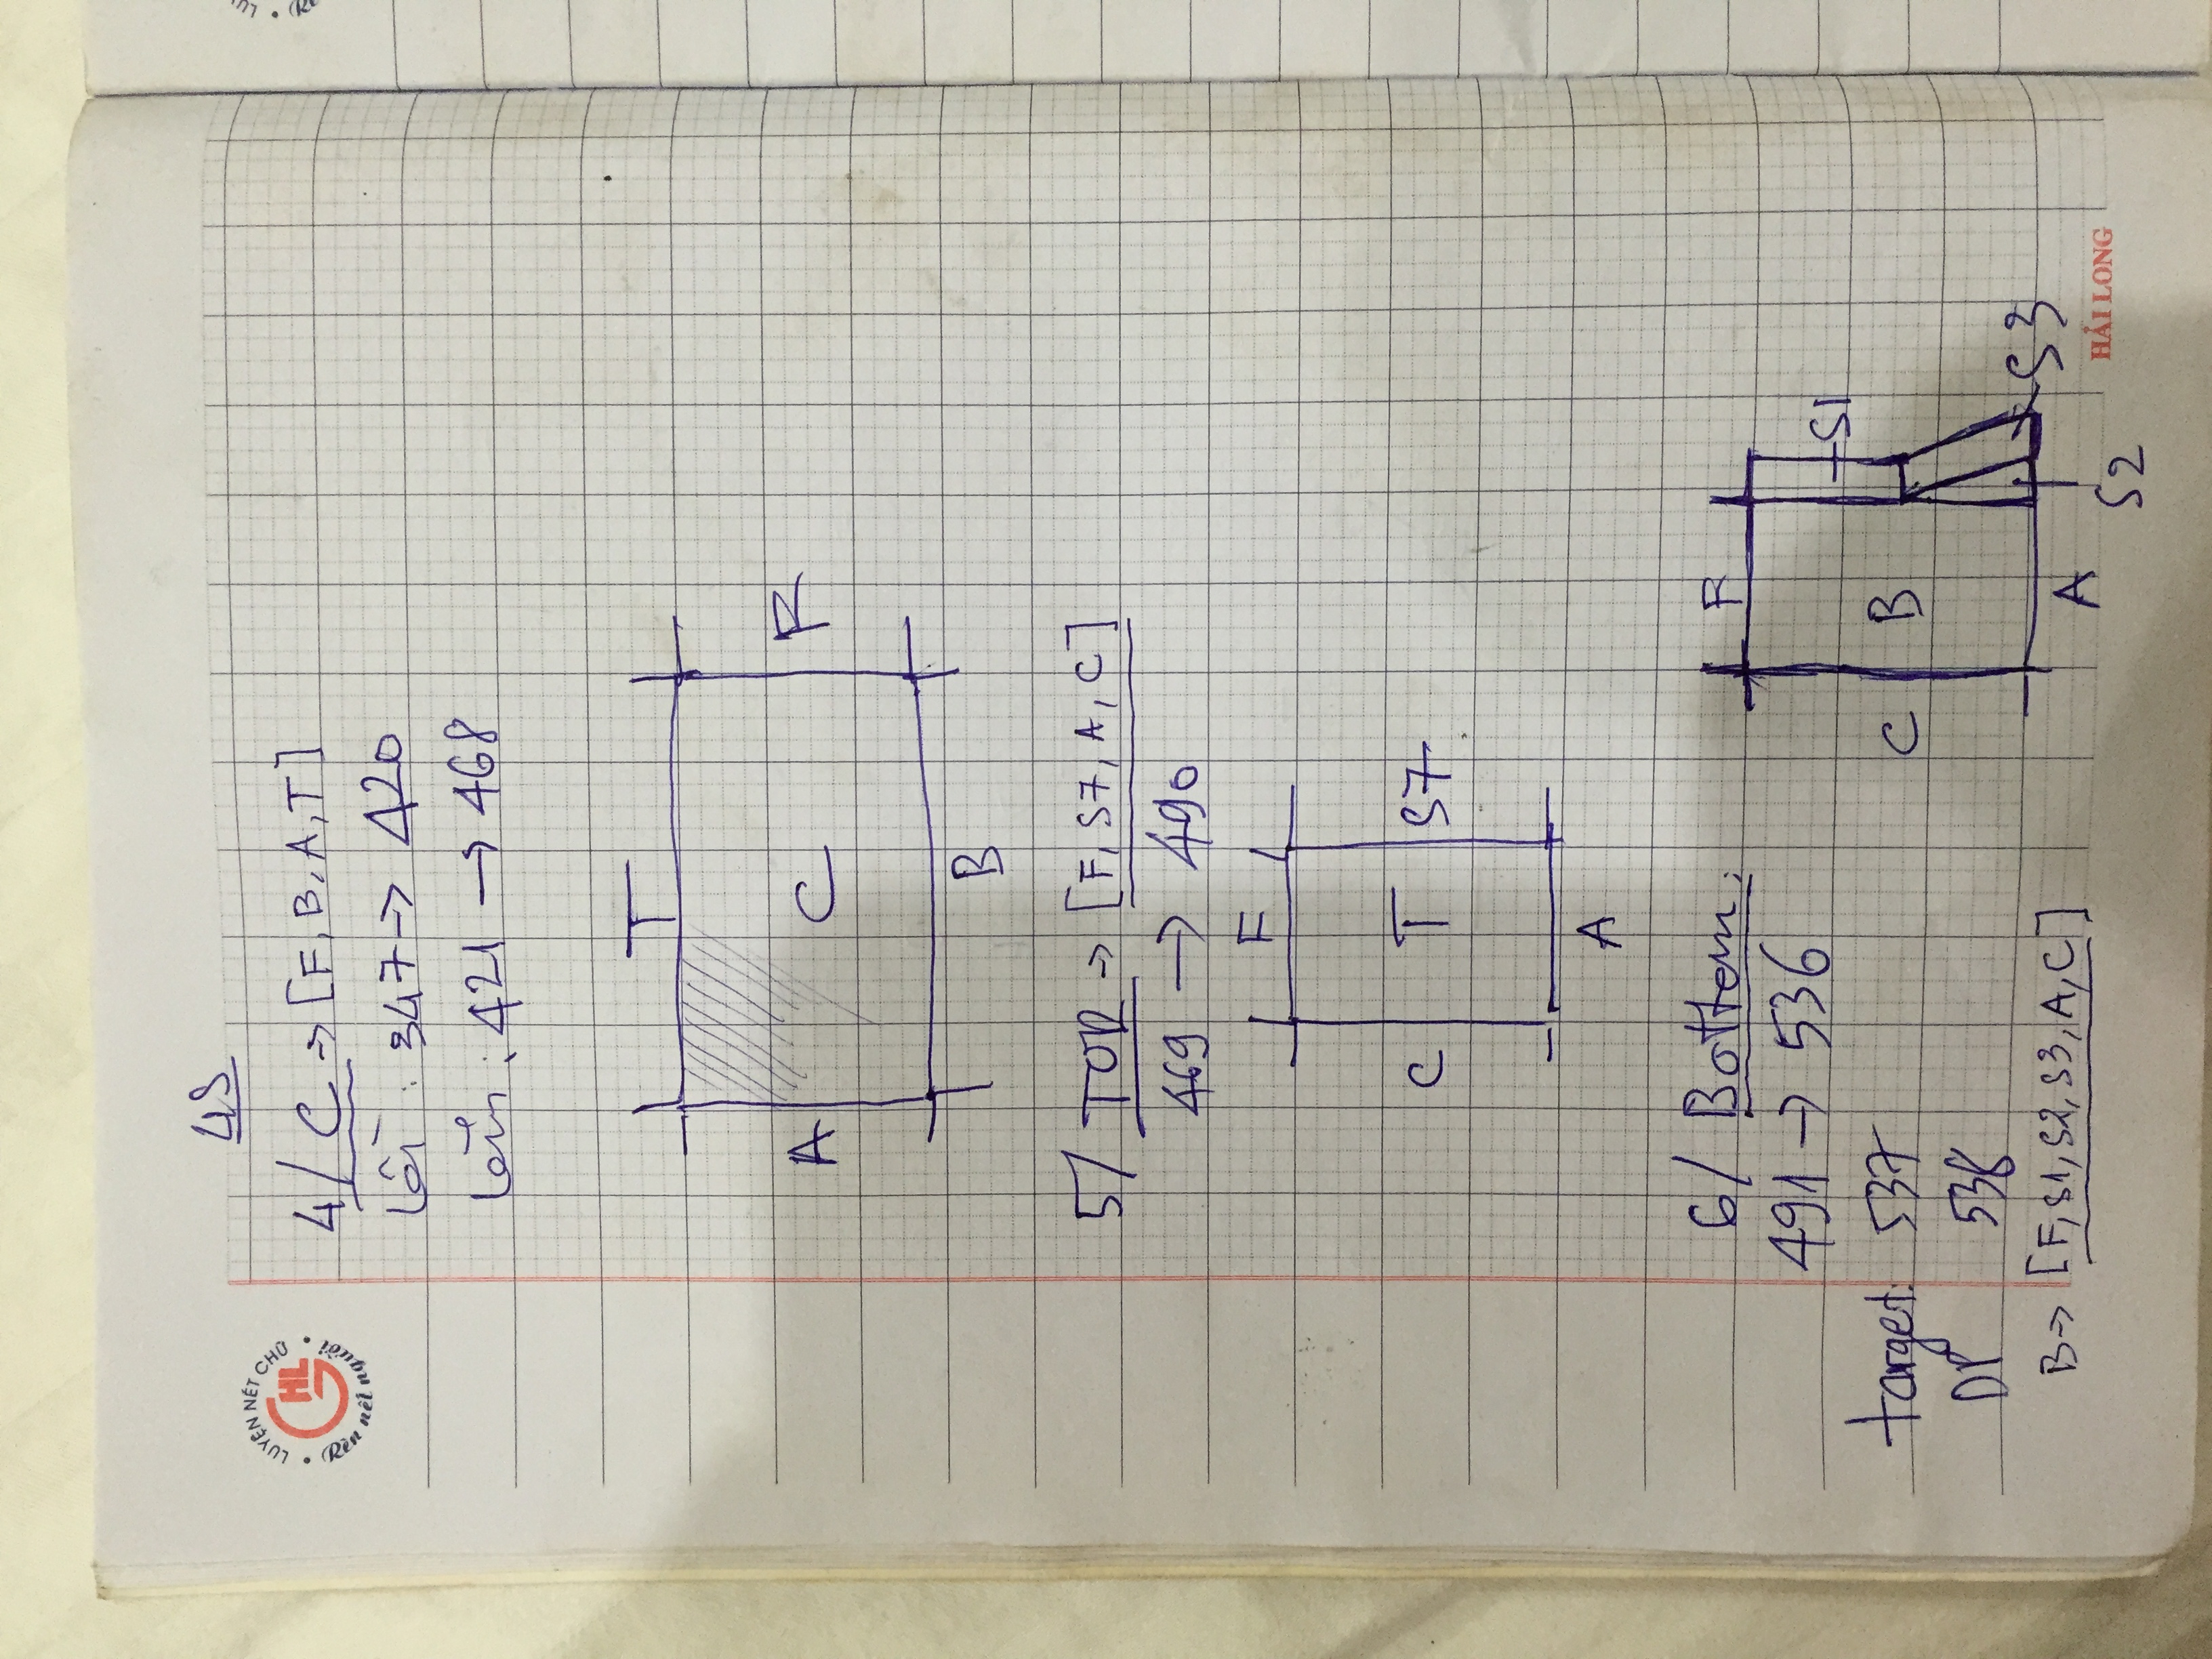 4S
LUYỆN NÉT CHỮ
HL
Rèn nết người
4/ C → [F, B, A, T]
lồi : 347 → 420
lõm : 421 → 468
T
A
C
F
B
5/ TOP → [F, S7, A, C]
469 → 490
F
C
T
S7
A
6/ Bottom:
491 → 536
target: 537
DP 538
B → [F, S1, S2, S3, A, C]
F
S1
C
B
S3
A
S2
HẢI LONG